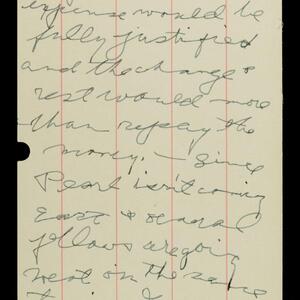 expense would be
fully justified
and the change &
rest would more
than repay the
money. — Since
Pearl isn't coming
East & several
fellows are going
west on the same